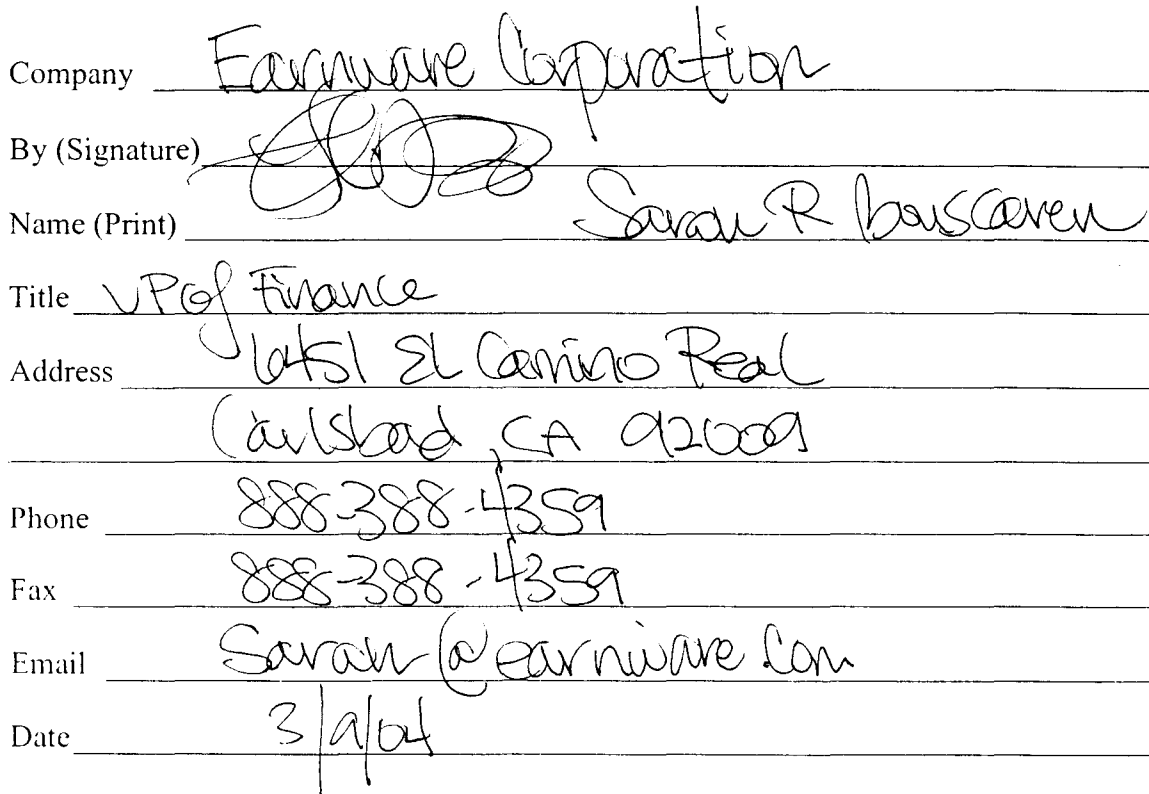 Company Earnware Corporation
By (Signature)
Name (Print) Sarah R Bouscaren
Title VP of Finance
Address 6451 El Camino Real
Carlsbad, CA 92009
Phone 888-388-4359
Fax 888-388-4359
Email Sarah@earnware.com
Date 3/9/04